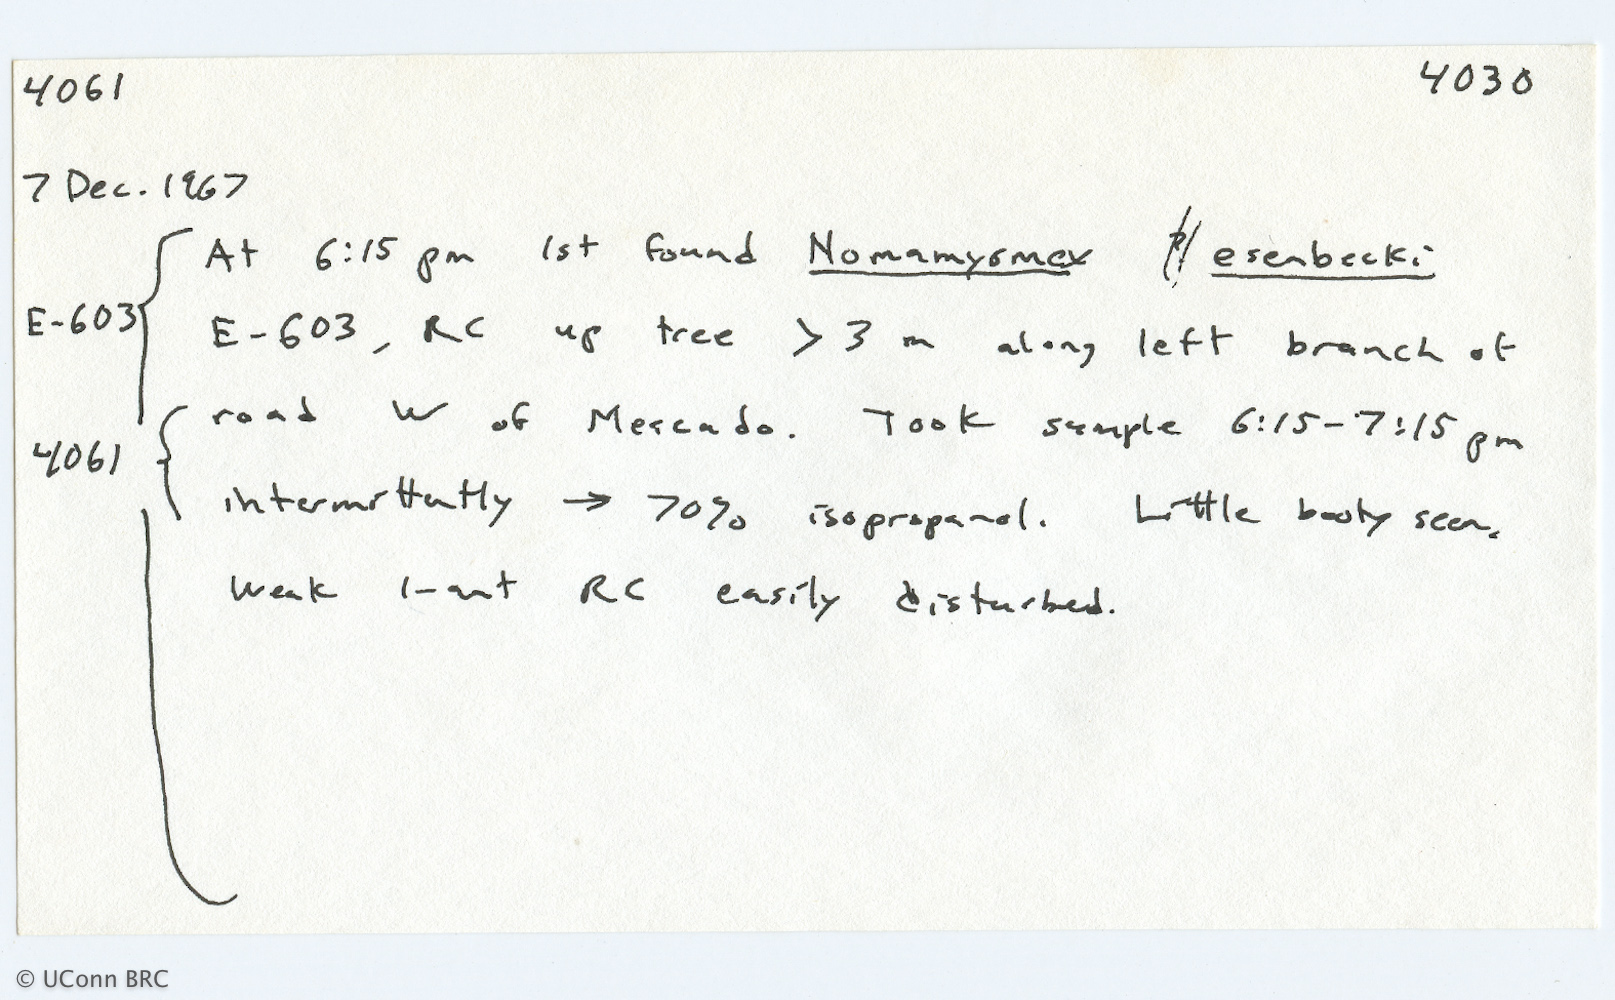 4061 4030
7 Dec. 1967
At 6:15 pm 1st found Nomamyrmex esenbecki
E-603 E-603, RC up tree > 3 m along left branch of
road W of Mercado. Took sample 6:15-7:15 pm
4061 intermittently → 70% isopropanol. Little booty seen.
Weak 1-ant RC easily disturbed.
© UConn BRC